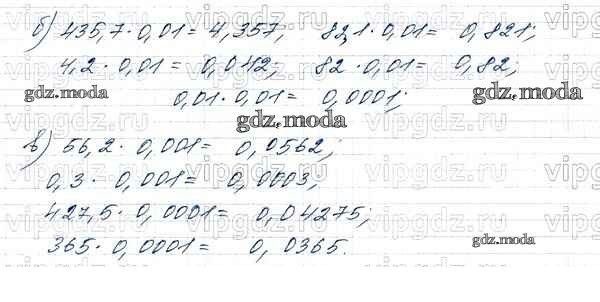 б) 435,7 · 0,01 = 4,357; 82,1 · 0,01 = 0,821;
4,2 · 0,01 = 0,042; 82 · 0,01 = 0,82;
0,01 · 0,01 = 0,0001;
в) 56,2 · 0,001 = 0,0562;
0,3 · 0,001 = 0,0003;
427,5 · 0,0001 = 0,04275;
365 · 0,0001 = 0,0365.
gdz.moda
gdz.moda
gdz.moda
gdz.moda
vipgdz.ru